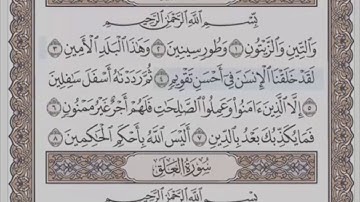 بِسْمِ اللَّهِ الرَّحْمَٰنِ الرَّحِيمِ
وَالتِّينِ وَالزَّيْتُونِ ١ وَطُورِ سِينِينَ ٢ وَهَٰذَا الْبَلَدِ الْأَمِينِ ٣
لَقَدْ خَلَقْنَا الْإِنسَٰنَ فِي أَحْسَنِ تَقْوِيمٍ ٤ ثُمَّ رَدَدْنَٰهُ أَسْفَلَ سَٰفِلِينَ
٥ إِلَّا الَّذِينَ ءَامَنُوا وَعَمِلُوا الصَّٰلِحَٰتِ فَلَهُمْ أَجْرٌ غَيْرُ مَمْنُونٍ ٦
فَمَا يُكَذِّبُكَ بَعْدُ بِالدِّينِ ٧ أَلَيْسَ اللَّهُ بِأَحْكَمِ الْحَٰكِمِينَ ٨
سُورَةُ الْعَلَقِ
بِسْمِ اللَّهِ الرَّحْمَٰنِ الرَّحِيمِ